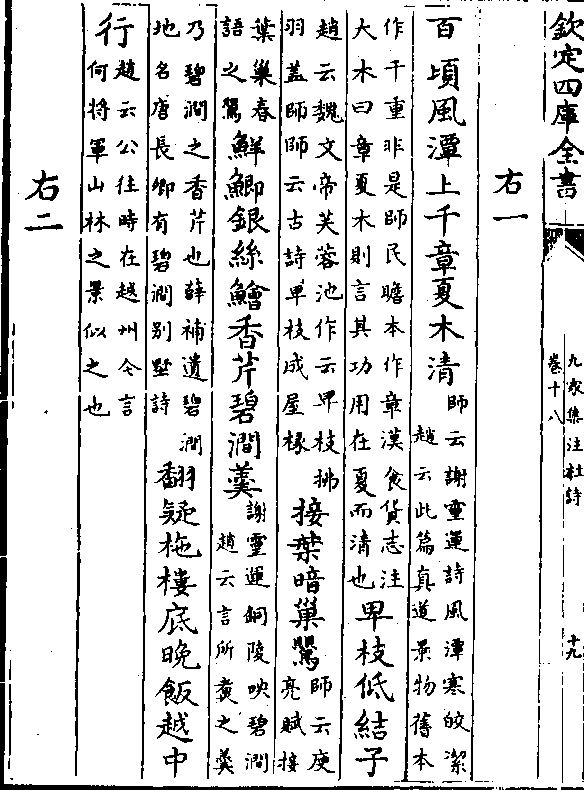 欽定四庫全書
九家集注杜詩
卷十八
十九
右一
百頃風潭上千章夏木清
師云謝靈運詩風潭寒皎潔
趙云此篇真道景物舊本
作千重非是師民瞻本作章漢食貨志注
大木曰章夏木則言其功用在夏而清也
卑枝低結子
趙云魏文帝芙蓉池作云卑枝拂
羽蓋師師云古詩卑枝成屋椽
接葉暗巢鶯
師云庾
亮賦接
葉巢春
語之鶯
鮮鯽銀絲鱠香芹碧澗羹
謝靈運銅陵映碧澗
趙云言所煮之羹
乃碧澗之香芹也薛補遺碧澗
地名唐長卿有碧澗别墅詩
翻疑柂樓底晚飯越中
行
趙云公往時在越州今言
何將軍山林之景似之也
右二